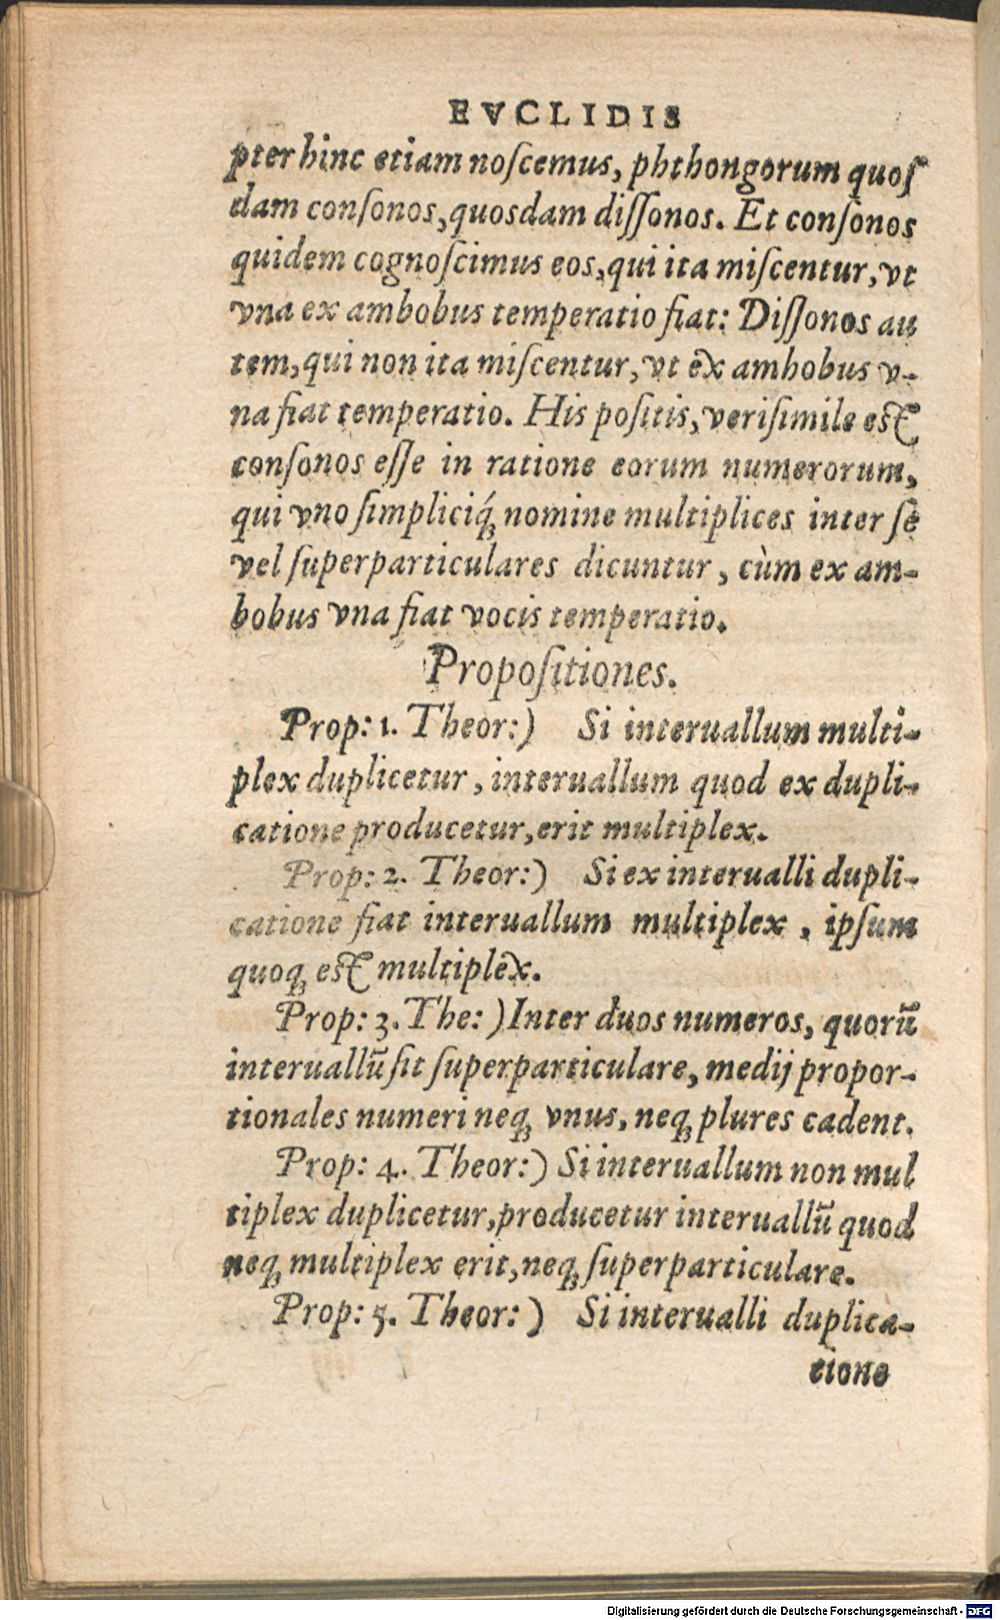 EVCLIDIS
pter hinc etiam noſcemus, phthongorum quoſ
dam conſonos, quosdam diſſonos. Et conſonos
quidem cognoſcimus eos, qui ita miſcentur, vt
vna ex ambobus temperatio fiat: Diſſonos au
tem, qui non ita miſcentur, vt ex ambobus v-
na fiat temperatio. His poſitis, veriſimile eſt
conſonos eſſe in ratione eorum numerorum,
qui vno ſimpliciq́ꝫ nomine multiplices inter ſe
vel ſuperparticulares dicuntur, cùm ex am-
bobus vna fiat vocis temperatio.
Propoſitiones.
Prop: 1. Theor:) Si interuallum multi-
plex duplicetur, interuallum quod ex dupli-
catione producetur, erit multiplex.
Prop: 2. Theor:) Si ex interualli dupli-
catione fiat interuallum multiplex, ipſum
quoqꝫ eſt multiplex.
Prop: 3. The:) Inter duos numeros, quorū
interuallū ſit ſuperparticulare, medij propor-
tionales numeri neqꝫ vnus, neqꝫ plures cadent.
Prop: 4. Theor:) Si interuallum non mul
tiplex duplicetur, producetur interuallū quod
neqꝫ multiplex erit, neqꝫ ſuperparticulare.
Prop: 5. Theor:) Si interualli duplica-
tione
Digitalisierung gefördert durch die Deutsche Forschungsgemeinschaft - DFG